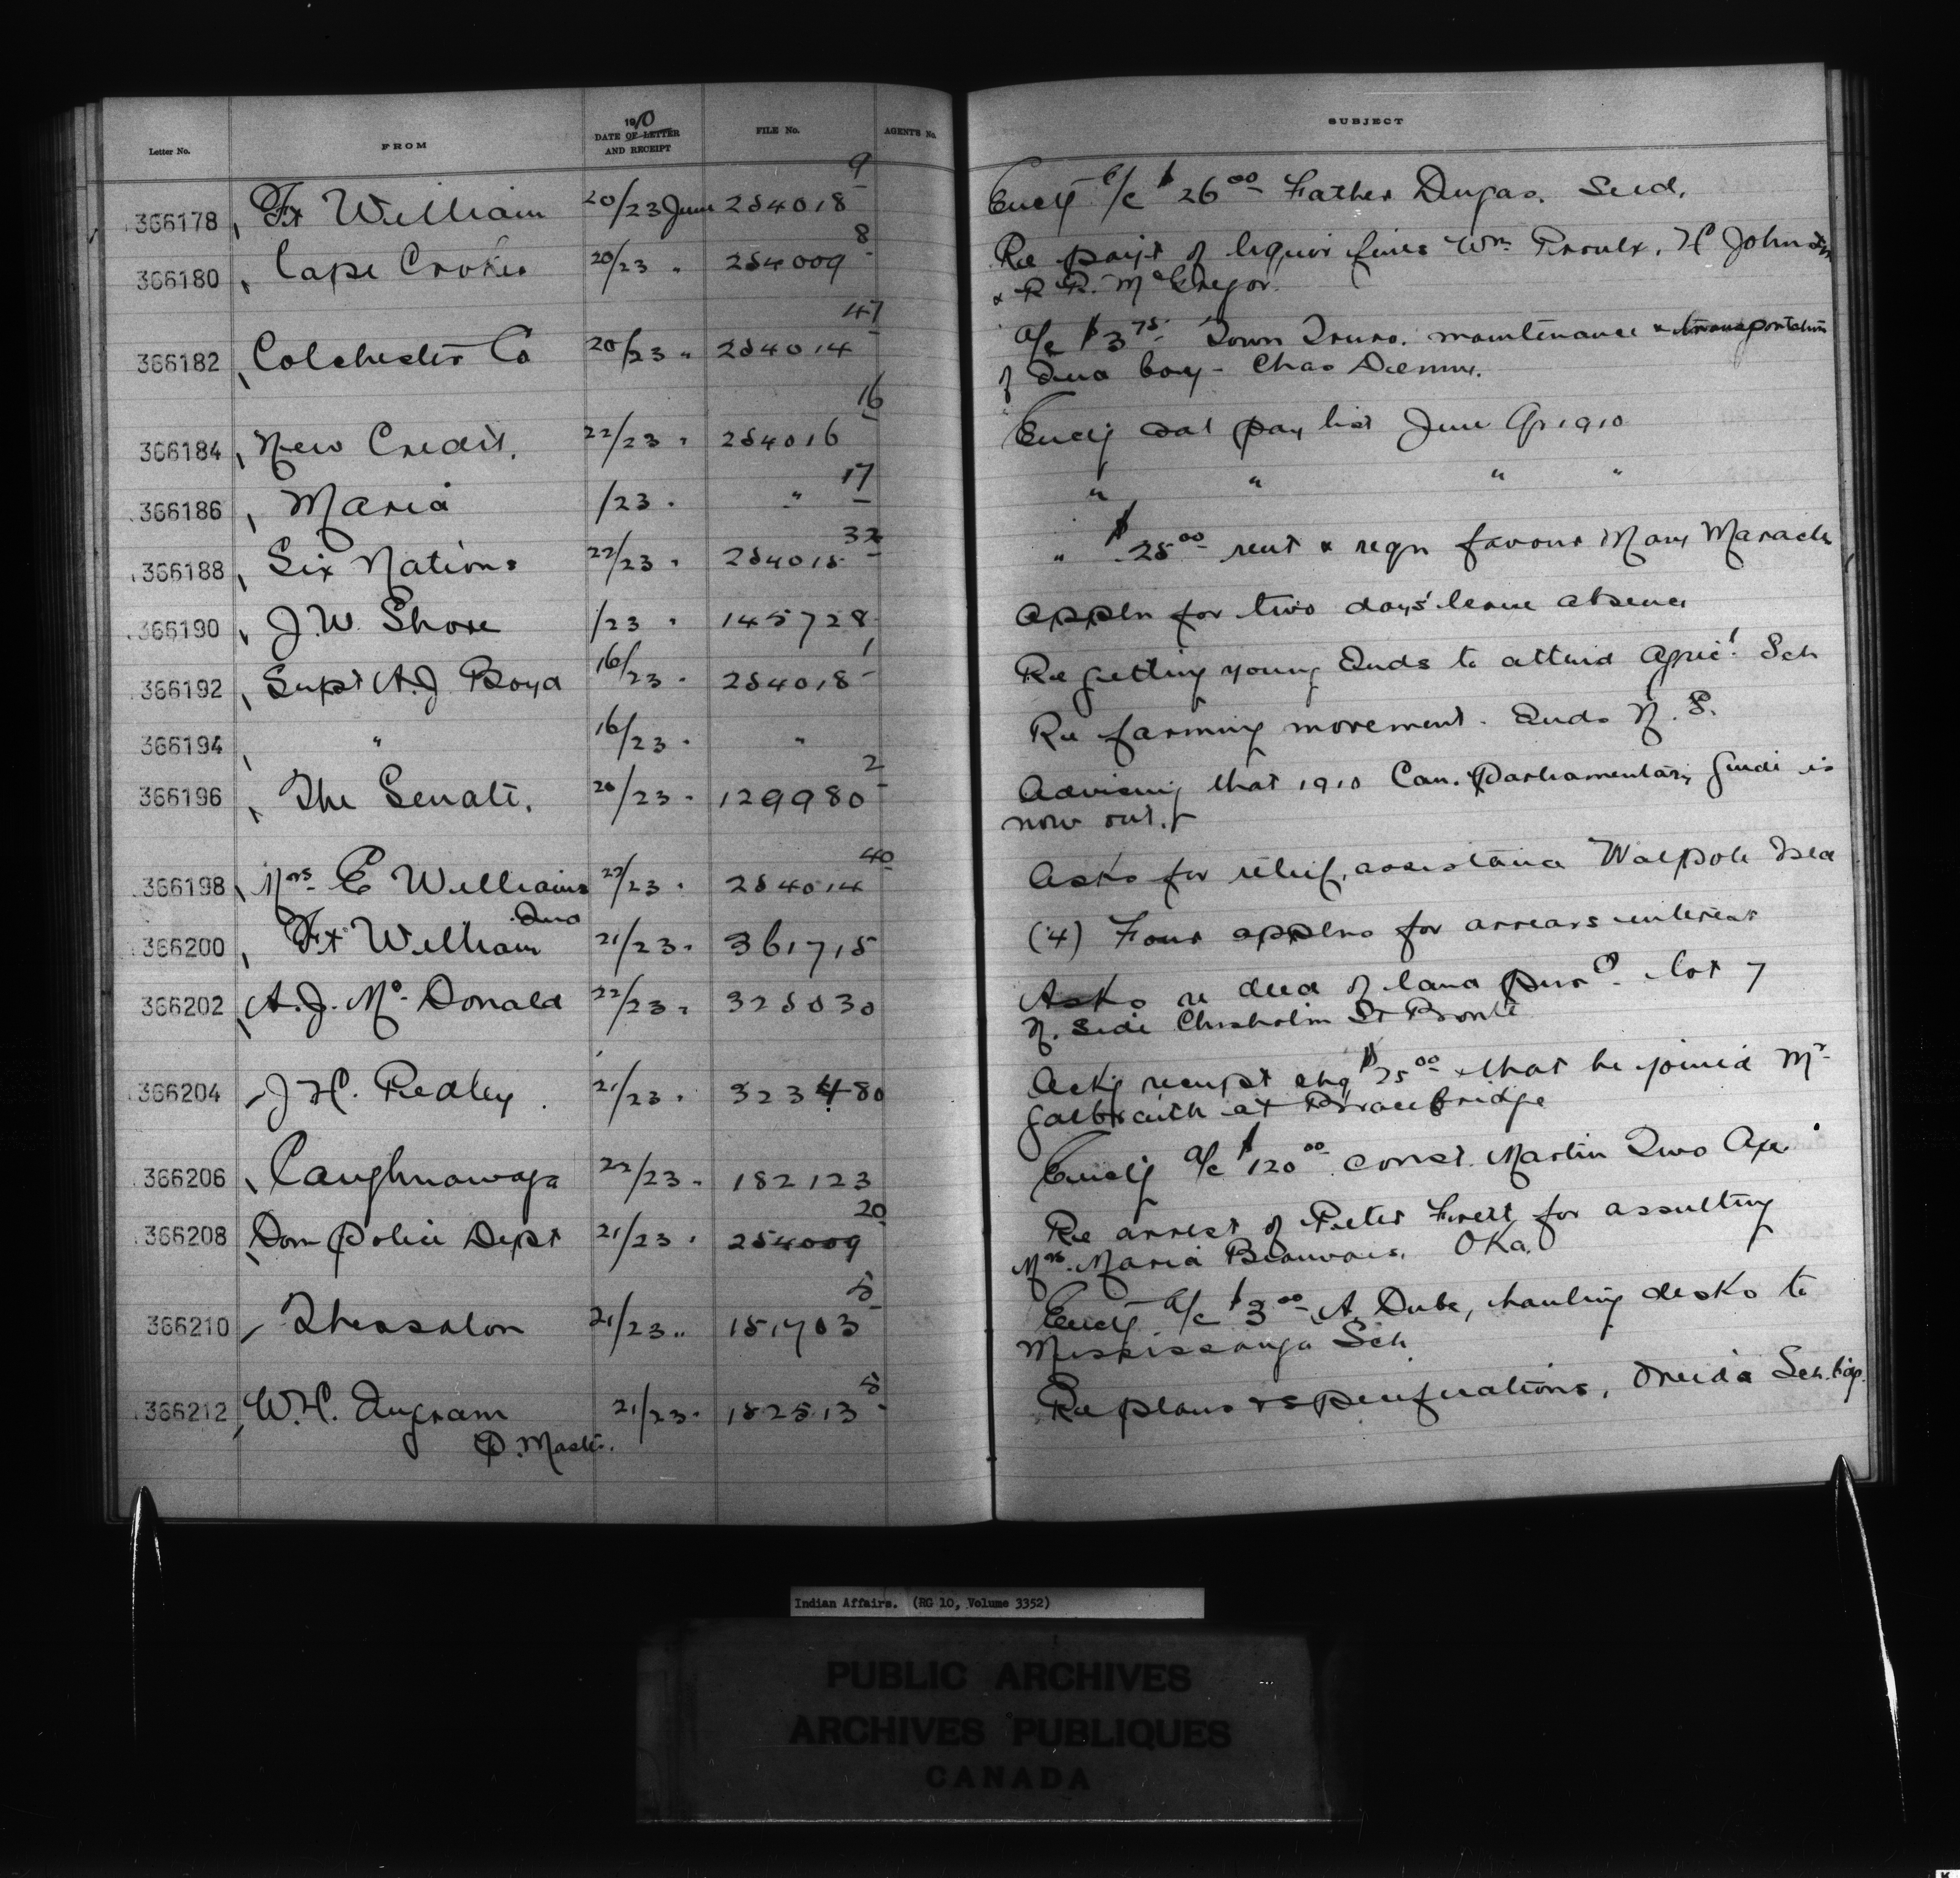 Letter No. FROM 1910 DATE OF LETTER AND RECEIPT FILE No. AGENT'S No. SUBJECT
366178 Ft William 20/23 June 254018-9 Encg a/c $26.00 Father Dugas. Seed.
366180 Cape Croker 20/23 " 254009-8 Re payt of liquor fines Wm Proulx, H Johnston
& R R. McGregor.
366182 Colchester Co 20/23 " 254014-47 a/c $3.75 Town Truro. maintenance & transportation
of Ind boy - Chas
366184 New Credit. 22/23 " 254016-16 Encg sal pay list June Qr 1910
366186 Maria /23 " " 17 " " " "
366188 Six Nations 22/23 " 254015-32 " $25.00 rent & reqn favour Mary Maracle
366190 J.W. Shore /23 " 145728 appln for two days' leave absence
366192 Supt A.J. Boyd 16/23 " 254018-1 Re getting young Inds to attend Agricl Sch
366194 " 16/23 " " Re farming movement. Inds N. S.
366196 The Senate. 20/23 " 129980-2 Advising that 1910 Can. Parliamentary Guide is
now out.
366198 Mrs E Williams 22/23 " 254014-40 Asks for relief, assistance Walpole Isld
366200 Ft William Inds 21/23 " 361715 (4) Four applns for arrears interest
366202 A.J. Mc Donald 22/23 " 325030 Asks re deed of land purd. lot 7
N. side Chisholm St Bronte
366204 J.H. Redley 21/23 " 323480 Ackg receipt chq $25.00 & that he joined Mr
Galbraith at Bracebridge
366206 Caughnawaga 22/23 " 182123 Encg a/c $120.00 const. Martin Two Axe.
366208 Dom Police Dept 21/23 " 254009-20 Re arrest of Peter for assulting
Mrs. Maria Beauvais. Oka.
366210 Thessalon 21/23 " 151703-5 Encg a/c $3.00 A. Dube, hauling desks to
Mississauga Sch
366212 W.H. Ingram 21/23 " 182513-5 Re plans & specifications, Oneida Sch.
P. Mast.
Indian Affairs. (RG 10, Volume 3352)
PUBLIC ARCHIVES
ARCHIVES PUBLIQUES
CANADA